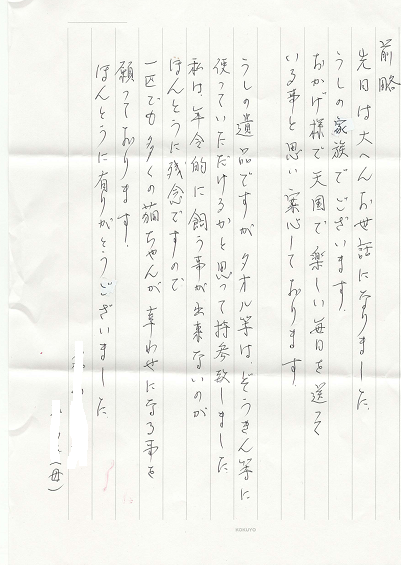 前略
先日は大へんお世話になりました
うしの家族でございます.
おかげ様で天国で楽しい毎日を送って
いる事と思い案心しております.
うしの遺品ですが タオル等は、ぞうきん等に
使っていただけるかと思って持参致しました
私は年令的に飼う事が出来ないのが
ほんとうに残念ですので
一匹でも多くの猫ちゃんが 幸わせになる事を
願っております.
ほんとうに有りがとうございました
(母)
KOKUYO